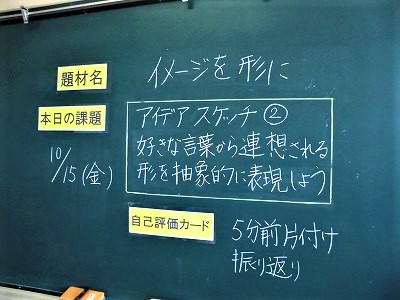 題材名
イメージを形に
本日の課題
アイデアスケッチ②
好きな言葉から連想される
形を抽象的に表現しよう
10/15(金)
自己評価カード
5分前片付け
振り返り